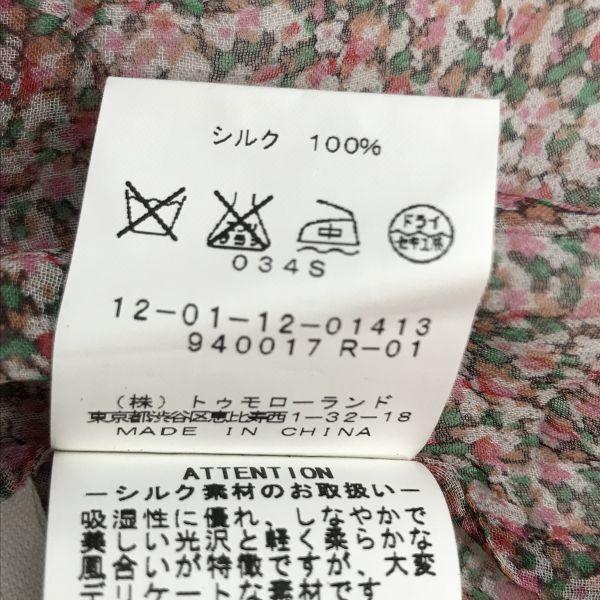 シルク 100%
中 ドライ セキユ系
034S
12-01-12-01413
940017 R-01
(株) トゥモローランド
東京都渋谷区恵比寿西1-32-18
MADE IN CHINA
ATTENTION
－シルク素材のお取扱い－
吸湿性に優れ、しなやかで
美しい光沢と軽く柔らかな
風合いが特徴ですが、大変
デリケートな素材です